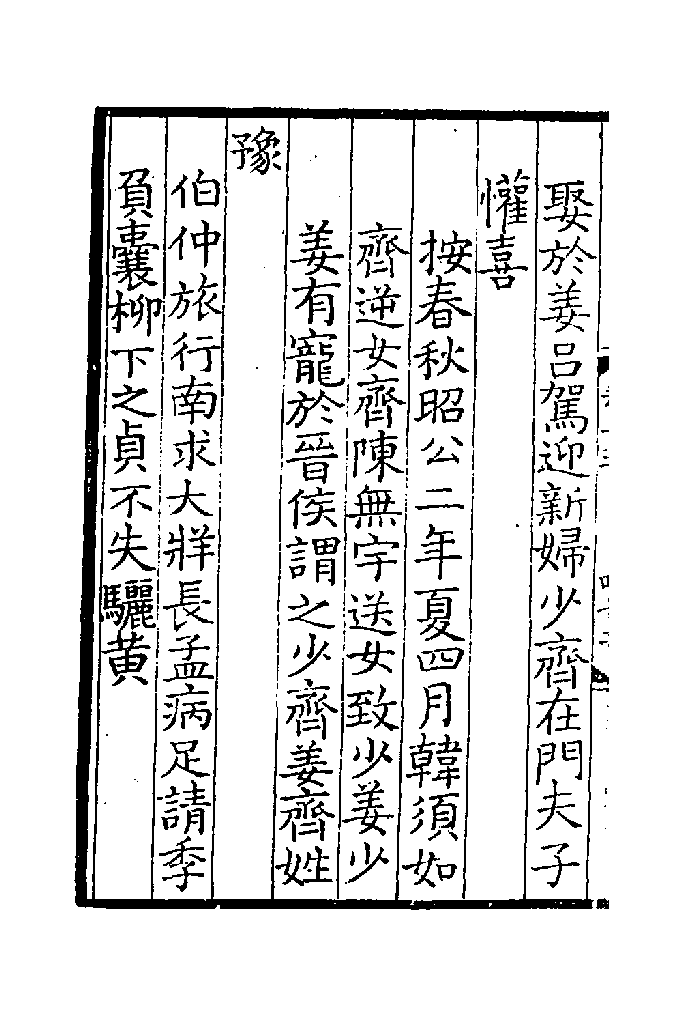 娶於姜吕駕迎新婦少齊在門夫子
懽喜
按春秋昭公二年夏四月韓須如
齊逆女齊陳無宇送女致少姜少
姜有寵於晉侯謂之少齊姜齊姓
豫
伯仲旅行南求大牂長孟病足請季
負囊柳下之貞不失驪黄